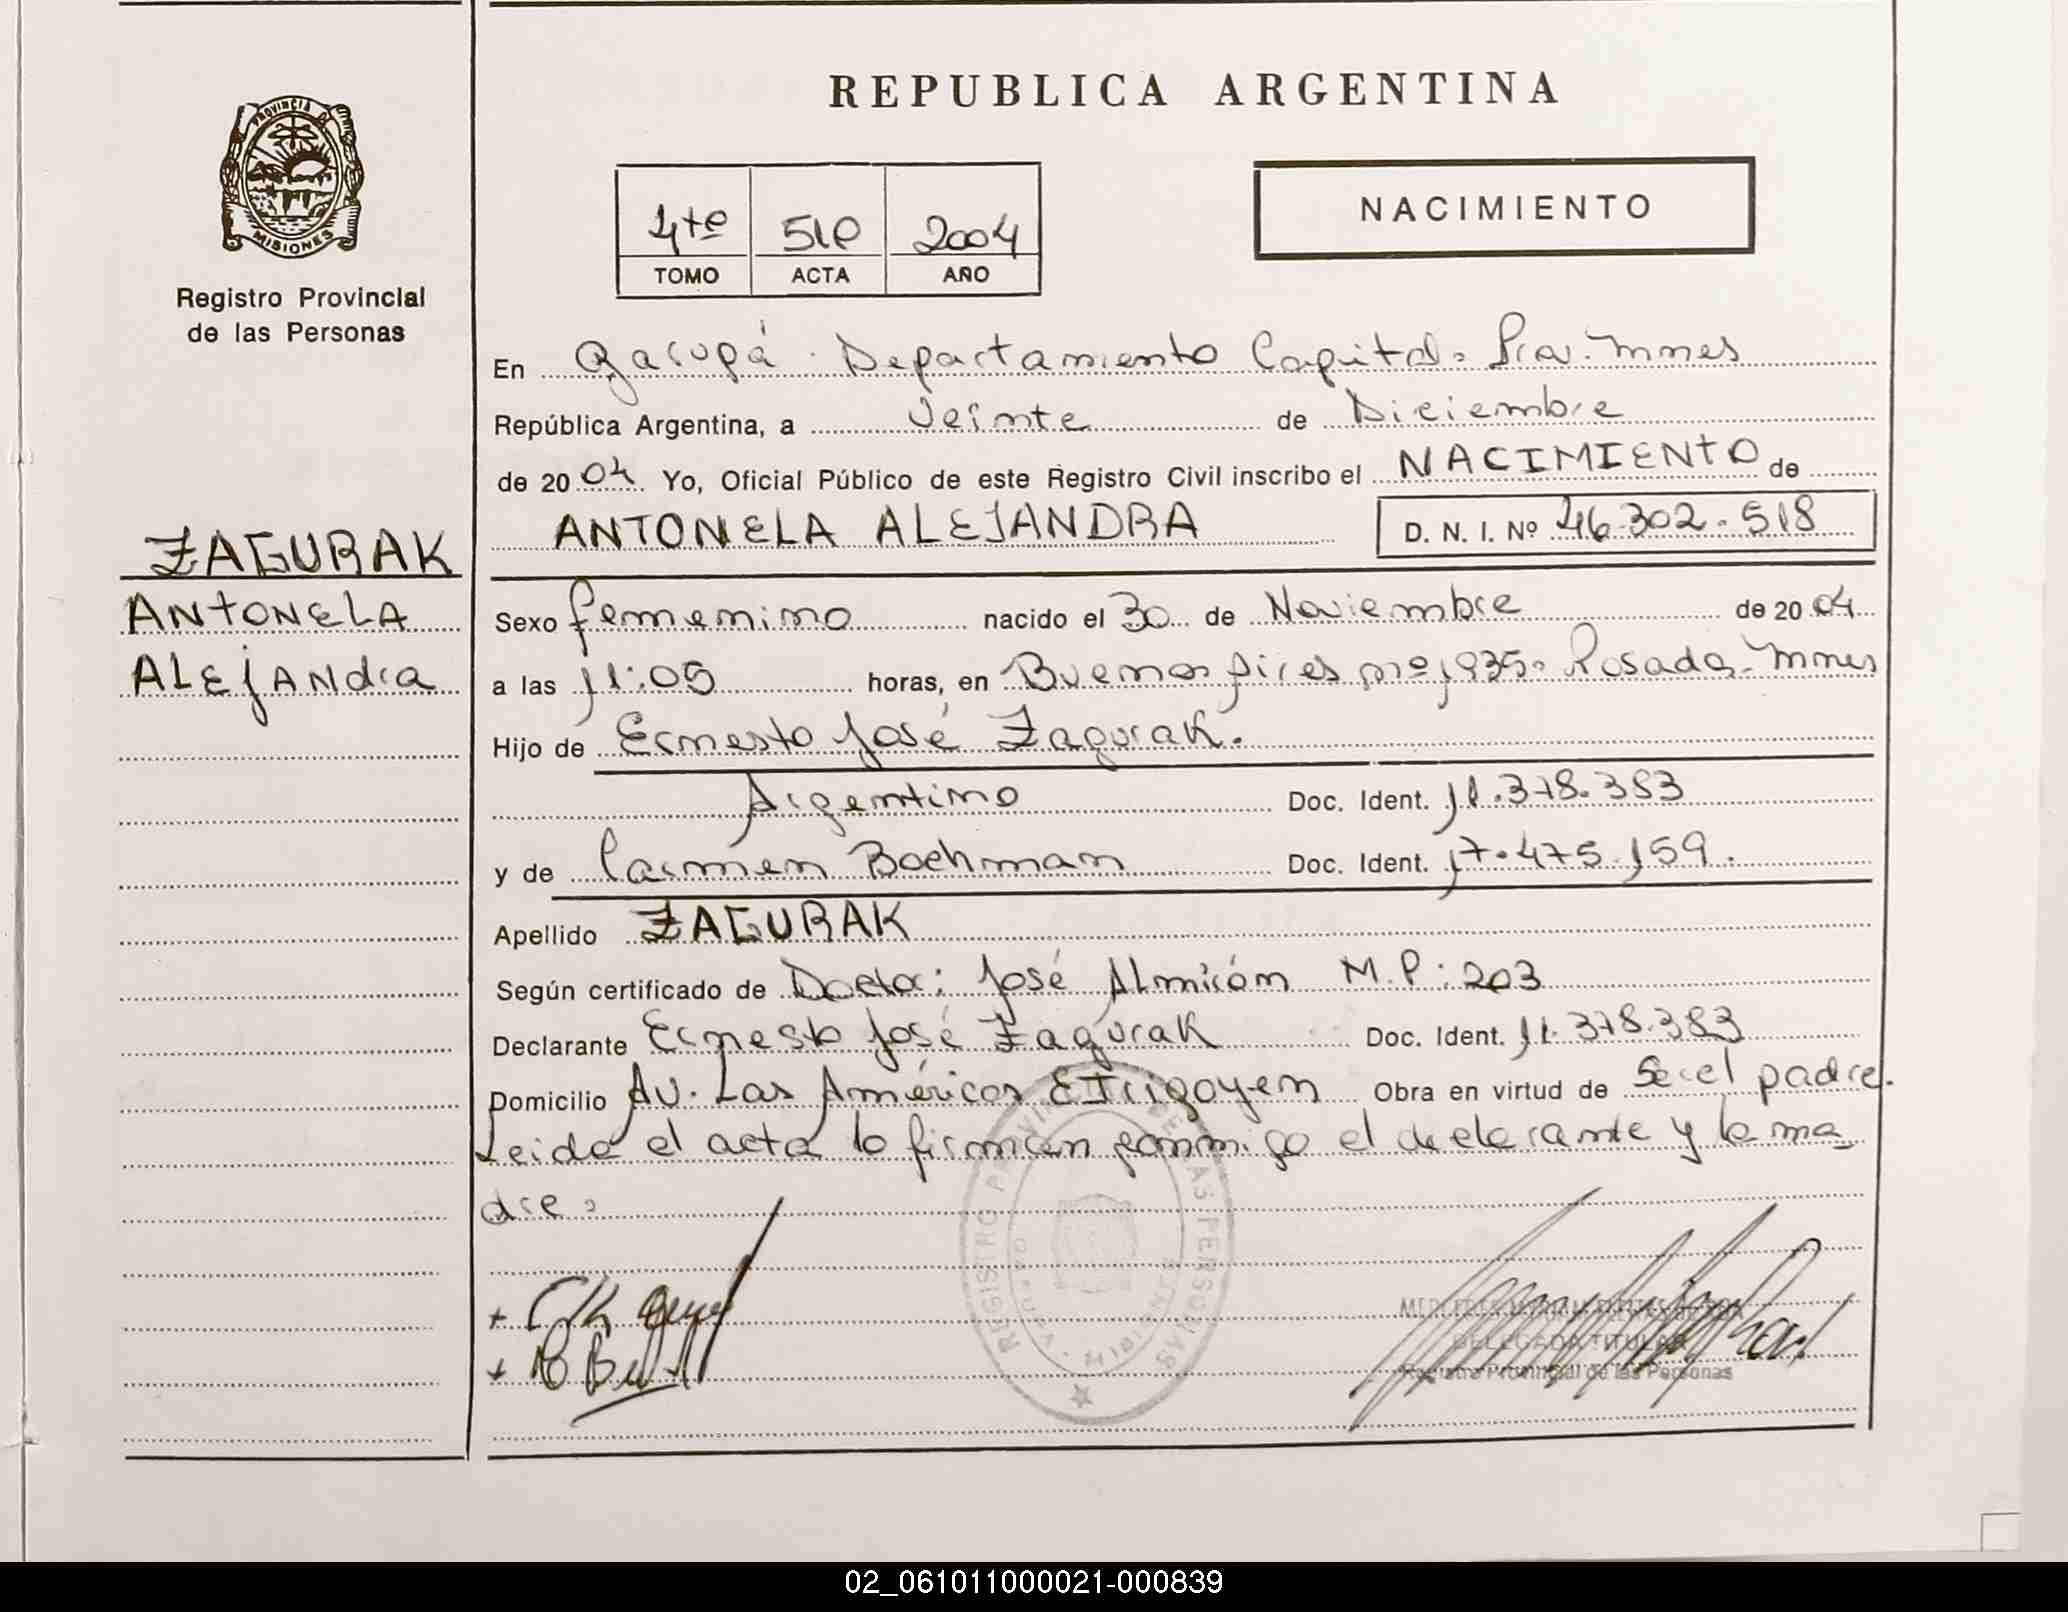 REPUBLICA ARGENTINA
PROVINCIA DE
MISIONES
Registro Provincial
de las Personas
4to 510 2004
TOMO ACTA AÑO
NACIMIENTO
En Garupá. Departamento Capital. Prov. Mnes
República Argentina, a Veinte de Diciembre
de 2004 Yo, Oficial Público de este Registro Civil inscribo el NACIMIENTO de
ANTONELA ALEJANDRA D. N. I. Nº 46.302.518
ZAGURAK
ANTONELA
ALEJANdra
Sexo femenino nacido el 30 de Noviembre de 2004
a las 11:05 horas, en Buenos Aires nº 1935. Posadas Mnes
Hijo de Ernesto José Zagurak.
Argentino Doc. Ident. 11.378.383
y de Carmen Bochman Doc. Ident. 17.475.159.
Apellido ZAGURAK
Según certificado de Doctor: José Almirón M.P: 203
Declarante Ernesto José Zagurak Doc. Ident. 11.378.383
Domicilio Av. Las Américas E Irigoyen Obra en virtud de Ser el padre.
Leida el acta lo firman conmigo el declarante y la ma
dre.
REGISTRO PROVINCIAL DE LAS PERSONAS
MISIONES
DELEGADA TITULAR
Registro Provincial de las Personas
02_061011000021-000839